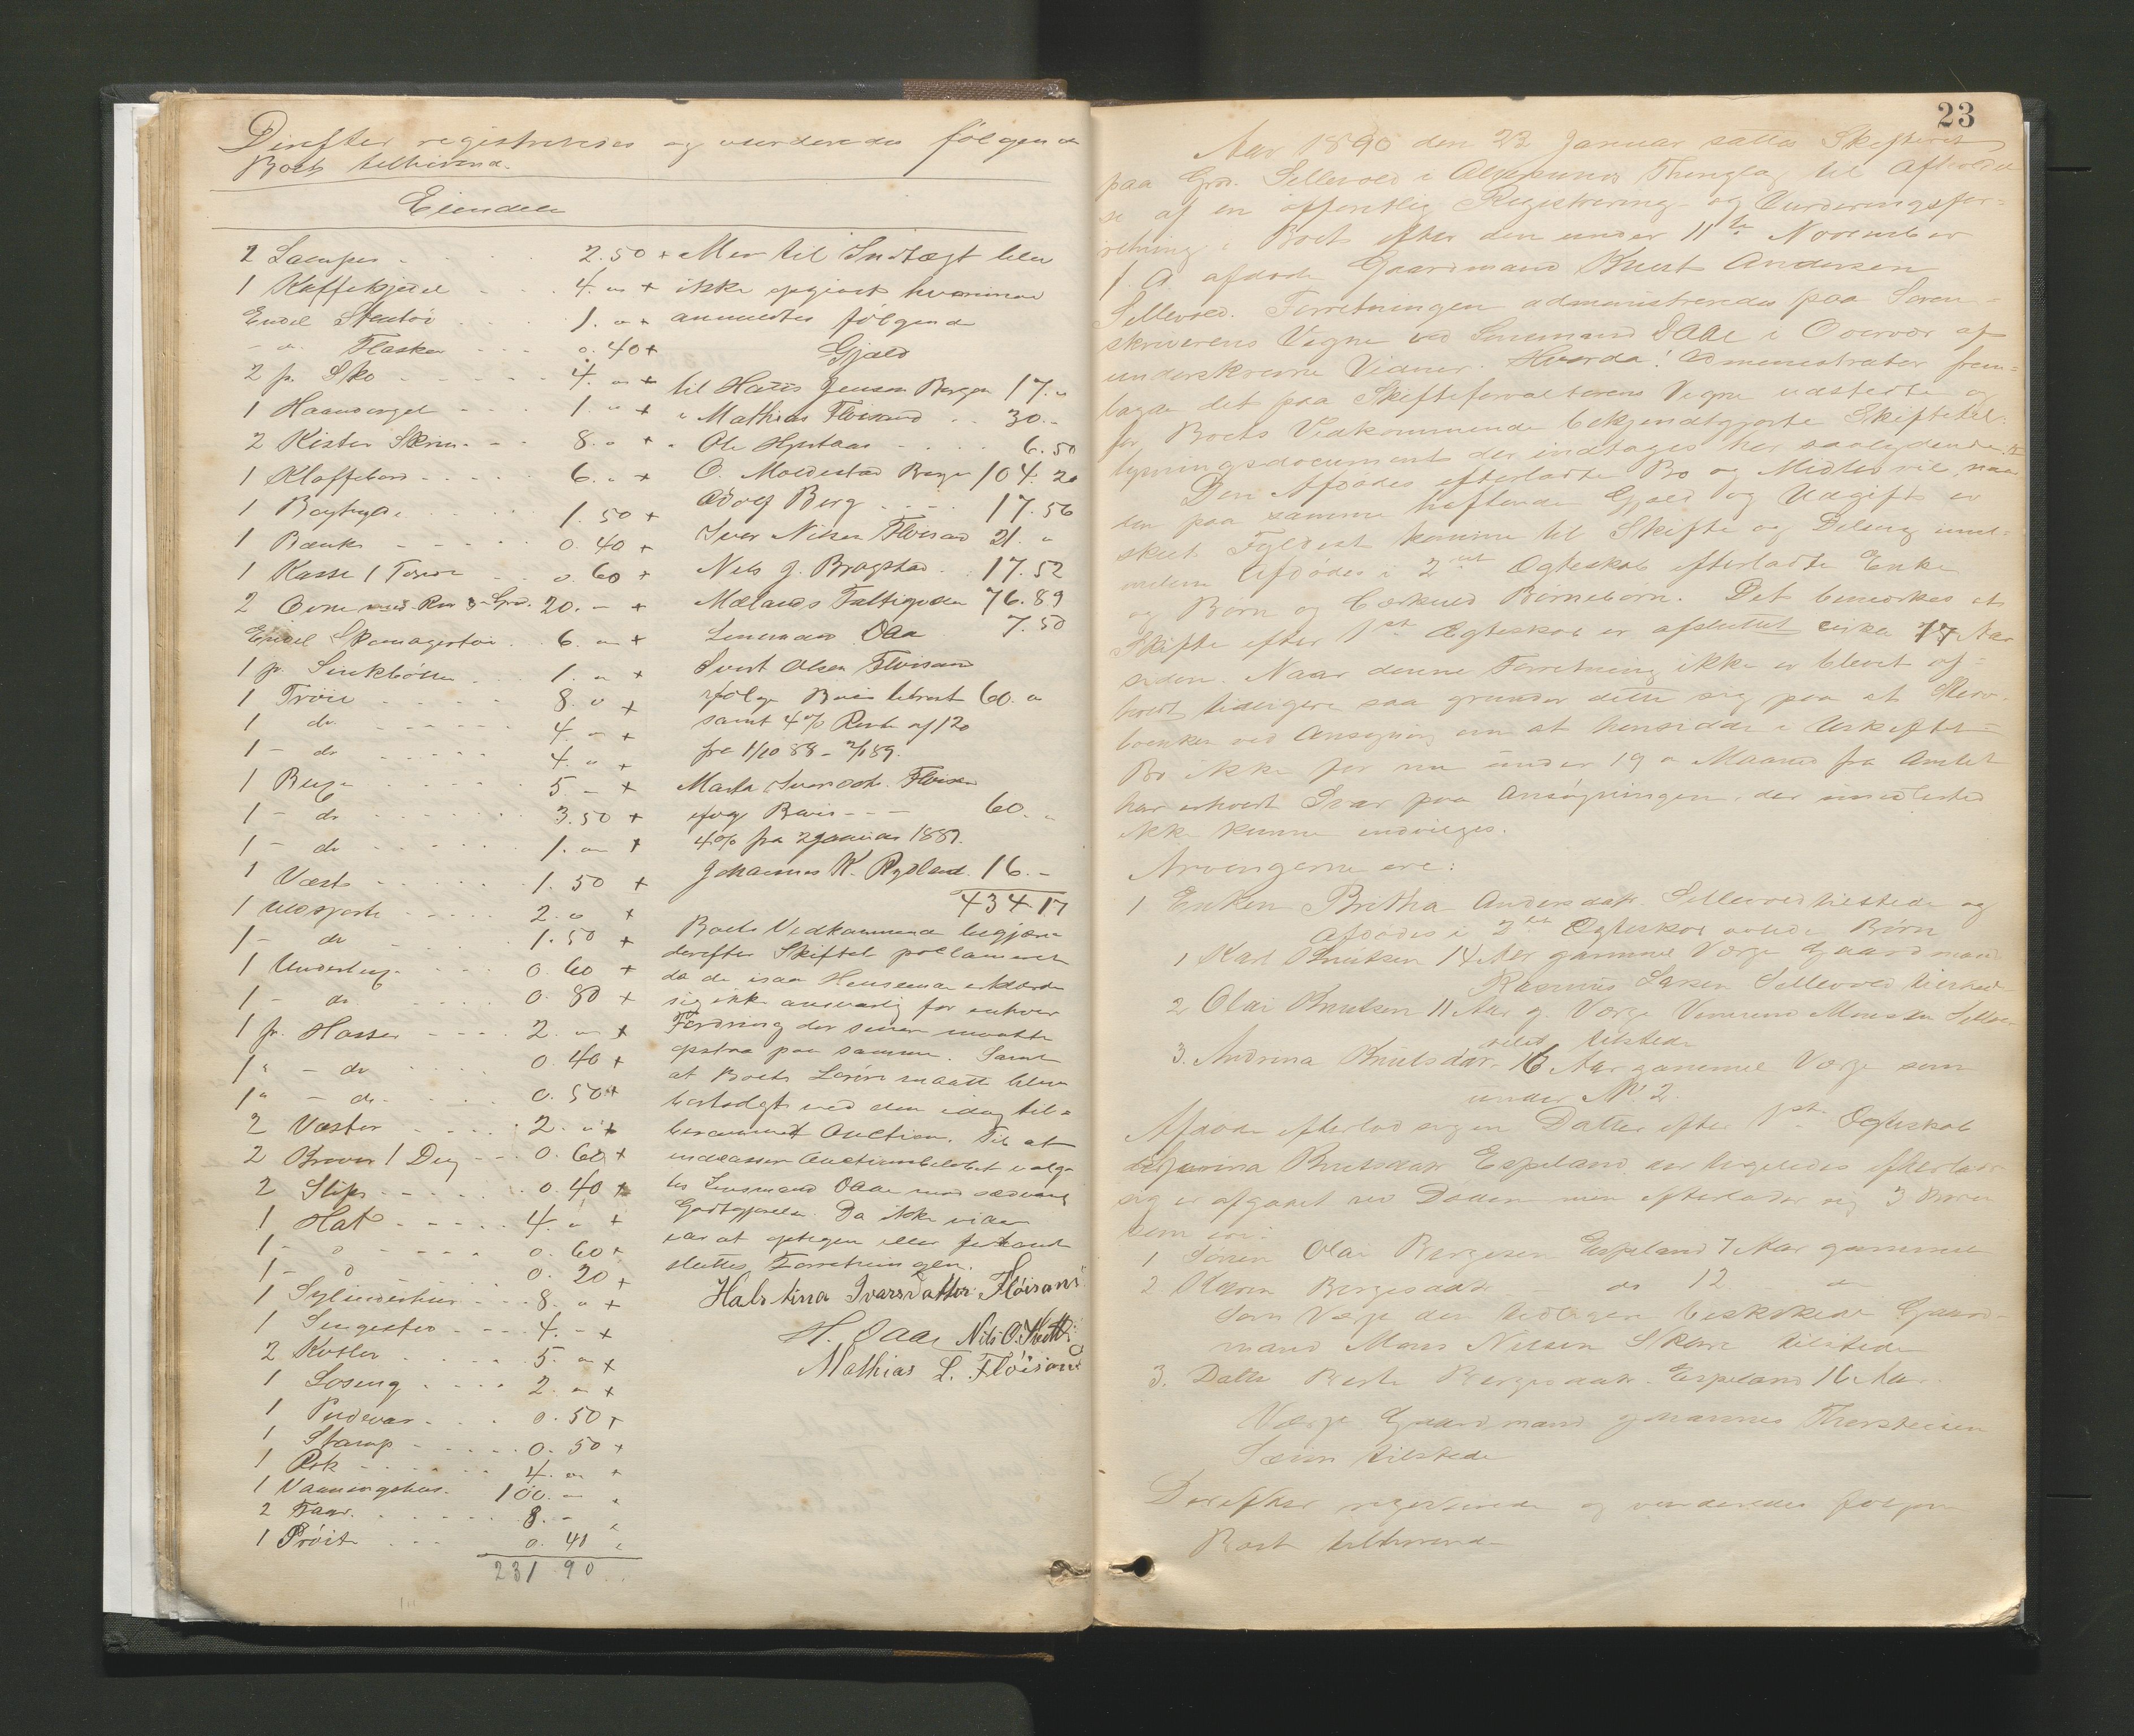 Derefter registreredes og vurderedes følgende
Boet tilhørende.
Eiendele
2 Lamper - 2.50 +
1 Kaffekjedel - 4. " +
Endel Stentøi 1. " +
- " - Flasker - 0.40 +
2 p. Sko - 4. " +
1 Haandorgel - 1. " +
2 Kister Skrin - 8. " +
1 Klaffebord - 6. " +
1 1.50 +
1 Bænk - 0.40 +
1 Kasse 1 0.60 +
2 Ovne med Rør 20. - +
Endel Skomagertøi . 6. " +
1 p. 1. " +
1 Trøie 8. " +
1 do 4. " +
1 - do 4. " +
1 Buxe 5 - +
1 - do 3.50 +
1 - do 1. " +
1 Væst 1.50 +
1 Uldskjorte 2. " +
1 - do 1.50 +
1 Underbuxe 0.60 +
1 - do 0.80 +
1 p. Hoser 2. " +
1 " - do 0.40 +
1 " - do 0.50 +
2 Vanter 2. " +
2 1 0.60 +
2 Slips 0.40 +
1 Hat 4. " +
1 - do 0.60 +
1 - do 0.20 +
1 Sylinderuhr 8. " +
1 Sengested 4. - +
2 5. " +
1 2. " +
1 Pudevar 0.50 +
1 Stamp 0.50 +
1 Rok 4. " +
1 Vaaningshus 100. -
2 Faar 8. -
1 0.40
231 90
Mer til Indtægt blev
ikke opgivet hvorimod
anmeldtes følgende
Gjæld
til Hans Jensen Bergen 17. "
" Mathias Fløisand .. 30. -
" Ole 6.50
O. Moldestad Bergen 104.20
Adolf Berg 17.56
Iver Nilsen Fløisand 21. "
Nils J. Brogstad 17.52
Mælands Fattigvæsen 76.89
Lensmand Daae 7.50
Sivert Olsen Fløisand
ifølge Bevis 60. "
samt 4% Rente af 120
fra 1/10 88 - 2/1 89.
Marta Iversdtr. Fløisand
ifølge Bevis - - 60. "
4% fra 2 Januar 1889.
Johannes K. Rydland 16. -
434.17
Boets Vedkommende begjærte
derefter Skiftet proclameret
da de isaa Henseende erklærede
sig ikke ansvarlig for enhver
Fordring der senere maatte
opstaa paa samme. Samt
at Boets Løsøre maatte blive
bortsolgt ved den idag til-
berammet Auction. Til at
indcassere Auctionsbeløbet valg-
tes Lensmand Daae mod sædvanlig
Godtgjørelse. Da ikke videre
var at optegne eller forhandle
sluttes Forretningen.
Halstina Ivarsdatter Fløisand
H. Daae Nils O.
Mathias L. Fløisand
23
Aar 1890 den 22 Januar sattes Skifteret
paa Grd. Sellevold i Alexsunds Thinglag til Afholdel-
se af en offentlig Registrering- og Vurderingsfor-
retning i Boet efter den under 11te November
f. A. afdøde Gaardmand Knut Andersen
Sellevold. Forretningen administreredes paa Soren-
skriverens Vegne ved Lensmand Daae i Overvær af
underskrevne Vidner. Hvorda! Administrator frem-
lagde det paa Skifteforvalterens Vegne udstedte og
for Boets Vedkommende bekjendtgjorte Skiftetil-
lysningsdocument der indtages her saalydende:
Den Afdødes efterladte Bo og Midler vil, naar
den paa samme heftende Gjæld og Udgift er
skeet Fyldest komme til Skifte og Deling imel-
lem Afdødes i 2det Ægteskab efterladte Enke
og Børn og Børnebørn. Det bemærkes at
Skifte efter 1ste Ægteskab er afsluttet cirka 17 Aar
siden. Naar denne Forretning ikke er blevet af-
holdt tidligere saa grunder dette sig paa at
Enken ved Ansøgning om at hensidde i Uskiftet
Bo ikke før nu under 19 a Maaned fra Amtet
har erholdt Svar paa Ansøgningen, der imidlertid
ikke kunne indvilges.
Arvingerne ere:
1 Enken Britha Andersdatr. Sellevold tilstede og
Afdødes i 2det Ægteskab avlede Børn
1 Karl Knutsen 14 Aar gammel Værge Gaardmand
Rasmus Larsen Sellevold tilstede
2 Olai Knutsen 11 Aar g. Værge Monsen Selle-
vold tilstede
3. Andrina Knutsdatr. 16 Aar gammel Værge som
under No 2.
Afdøde efterlod sig en Datter efter 1ste Ægteskab
Knutsdatr Espeland der ligeledes
er afgaaet ved Døden men efterlader sig 3 Børn
som ere:
1 Søren Olai Børgesen Espeland 7 Aar gammel
2 Karen Børgesdatr do 12 do
Som Værge den tidligere beskikkede Gaard-
mand Mons Nilsen Skare tilstede
3. Datter Børgesdatr. Espeland 16 Aar.
Værge Gaardmand Johannes Thorsteinsen
Sæim tilstede
Derefter registreredes og vurderedes følgende
Boet tilhørende